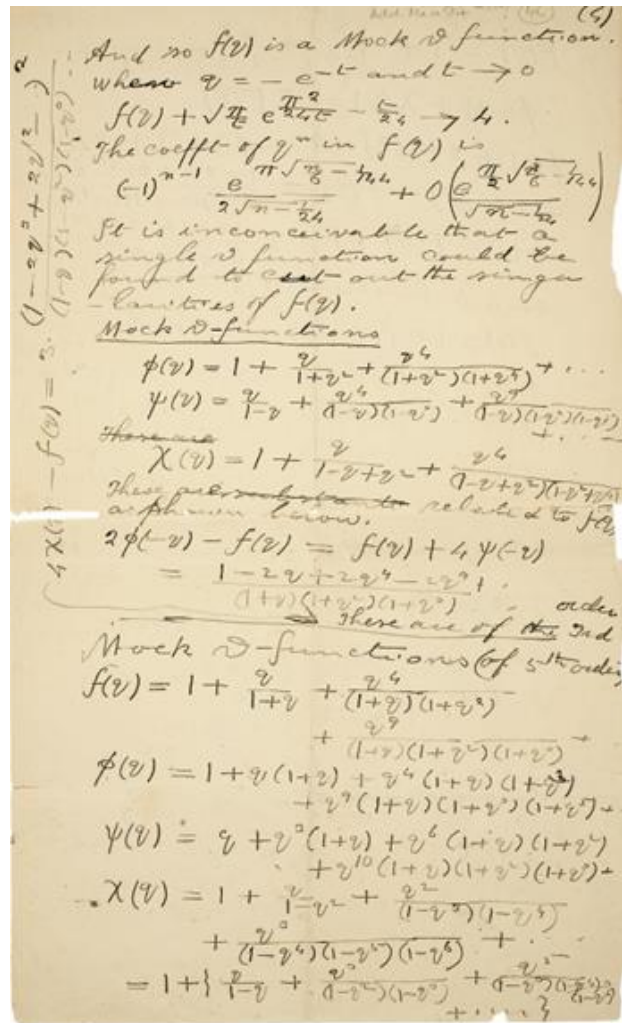 (4)
And so f(q) is a Mock ϑ function.
When q = − e^{−t} and t → 0
f(q) + √(π/t) e^{π²/24t − t/24} → 4.
The coefft of q^n in f(q) is
(−1)^{n−1} e^{π√(n/6 − 1/144)} / 2√(n − 1/24) + O( e^{π/2 √(n/6 − 1/144)} / √(n − 1/24) )
It is inconceivable that a
single ϑ function could be
found to cut out the singu
-larities of f(q).
Mock ϑ-functions
φ(q) = 1 + q/(1+q²) + q⁴/(1+q²)(1+q⁴) + ...
ψ(q) = q/(1−q) + q⁴/(1−q)(1−q³) + q⁹/(1−q)(1−q³)(1−q⁵)
+ ...
There are
χ(q) = 1 + q/(1−q+q²) + q⁴/(1−q+q²)(1−q²+q⁴)
These are related to f(q)
as shewn below.
2φ(−q) − f(q) = f(q) + 4ψ(−q)
= (1 − 2q + 2q⁴ − 2q⁹ + ..)/(1+q)(1+q²)(1+q³)
4χ(q) − f(q) = 3. (1 − 2q³ + 2q¹² − ..)²/(1−q)(1−q²)(1−q³)
order
These are of the 3rd
Mock ϑ-functions (of 5th order)
f(q) = 1 + q/(1+q) + q⁴/(1+q)(1+q²)
+ q⁹/(1+q)(1+q²)(1+q³) +
φ(q) = 1 + q(1+q) + q⁴(1+q)(1+q³)
+ q⁹(1+q)(1+q³)(1+q⁵) +
ψ(q) = q + q³(1+q) + q⁶(1+q)(1+q²)
+ q¹⁰(1+q)(1+q²)(1+q³) +
χ(q) = 1 + q/(1−q²) + q²/(1−q³)(1−q⁴)
+ q³/(1−q⁴)(1−q⁵)(1−q⁶) + ..
= 1 + { q/(1−q) + q³/(1−q²)(1−q³) + q⁵/(1−q³)(1−q⁴)(1−q⁵)
+ .... }